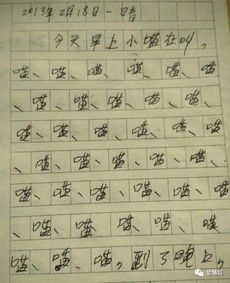 2013年2月18日一晴
今天早上小喵在叫，
喵、喵、喵、喵、喵、喵
、喵、喵、喵、喵、喵、喵
喵、喵、喵、喵、喵、喵
、喵、喵、喵、喵、喵、喵、
喵、喵、喵、喵、喵、喵
、喵、喵、喵、喵、喵、喵
喵、喵、喵，到了晚上，